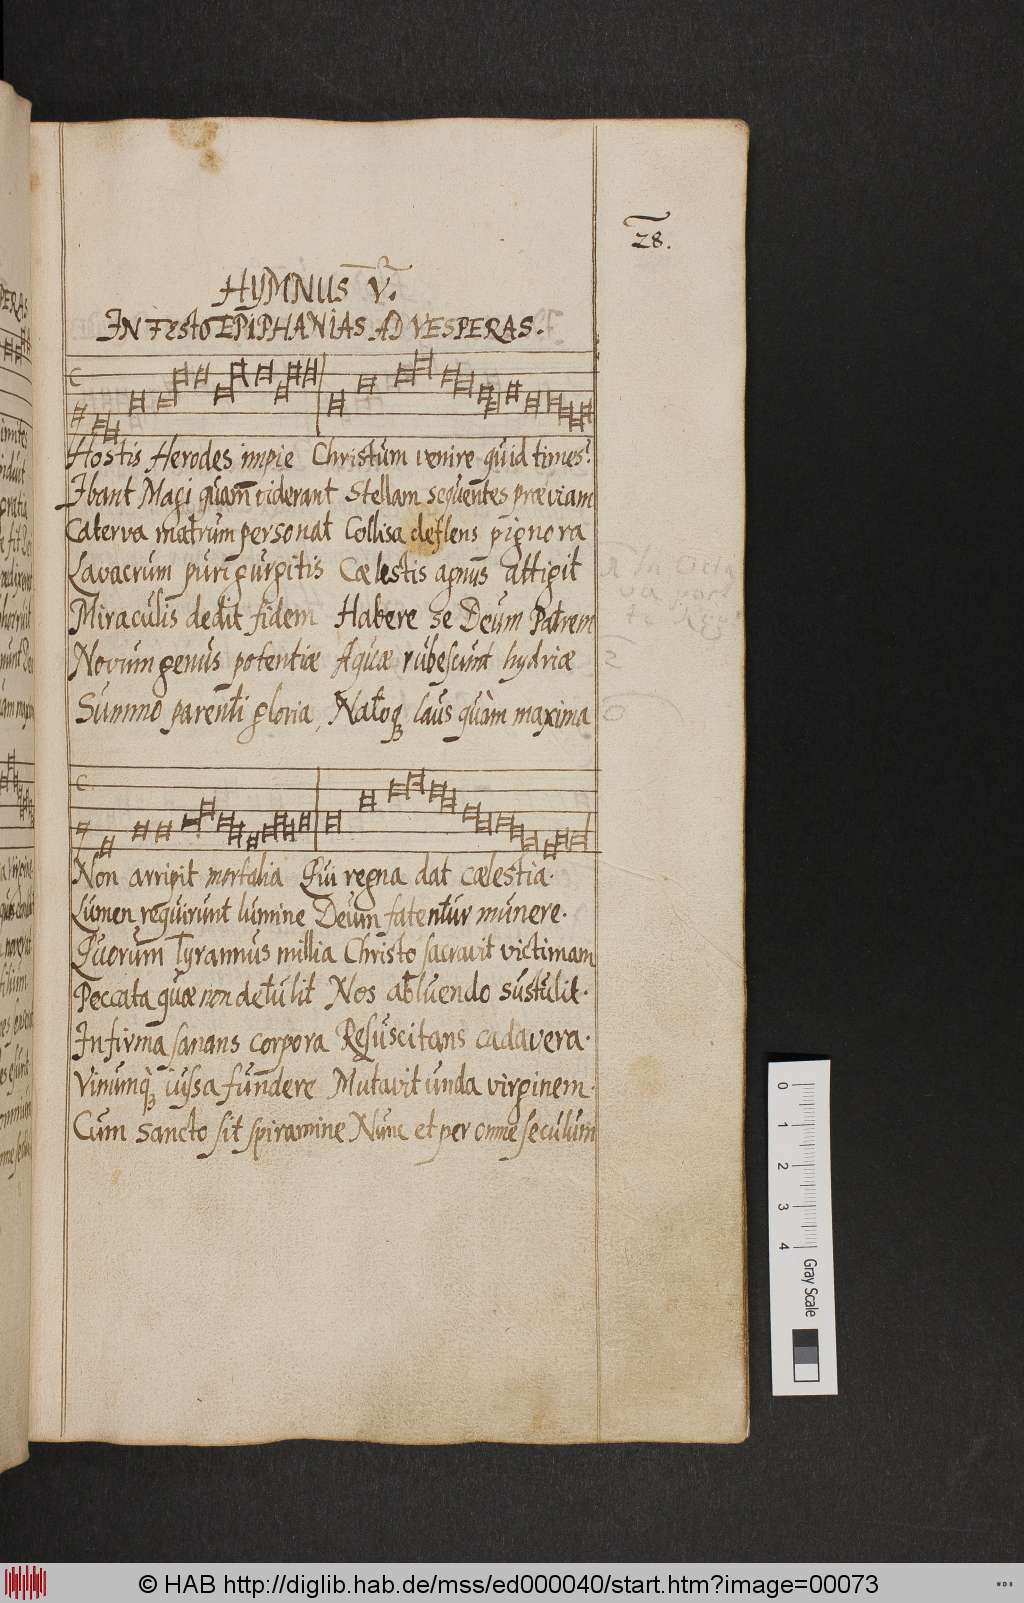 28.
HYMNUS V.
IN Festo EPIPHANIAS AD VESPERAS.
Hostis Herodes impie Christum venire quid times?
Ibant Magi quam viderant Stellam sequentes præviam
Caterva matrum personat Collisa deflens pignora
Lavacrum puri gurgitis Cælestis agnus attigit
Miraculis dedit fidem Habere se Deum Patrem
Novum genus potentiæ Aquæ rubescunt hydriæ
Summo parenti gloria, Natoq laus quàm maxima
Non arripit mortalia Qui regna dat cælestia.
Lumen requirunt lumine Deum fatentur munere.
Quorum Tyrannus millia Christo sacravit victimam
Peccata quæ non detulit Nos abluendo sustulit.
Infirma sanans corpora Resuscitans cadavera.
Vinumq iussa fundere Mutavit unda virginem.
Cum sancto sit spiramine Nunc et per omne seculum
0 1 2 3 4 Gray Scale
© HAB http://diglib.hab.de/mss/ed000040/start.htm?image=00073